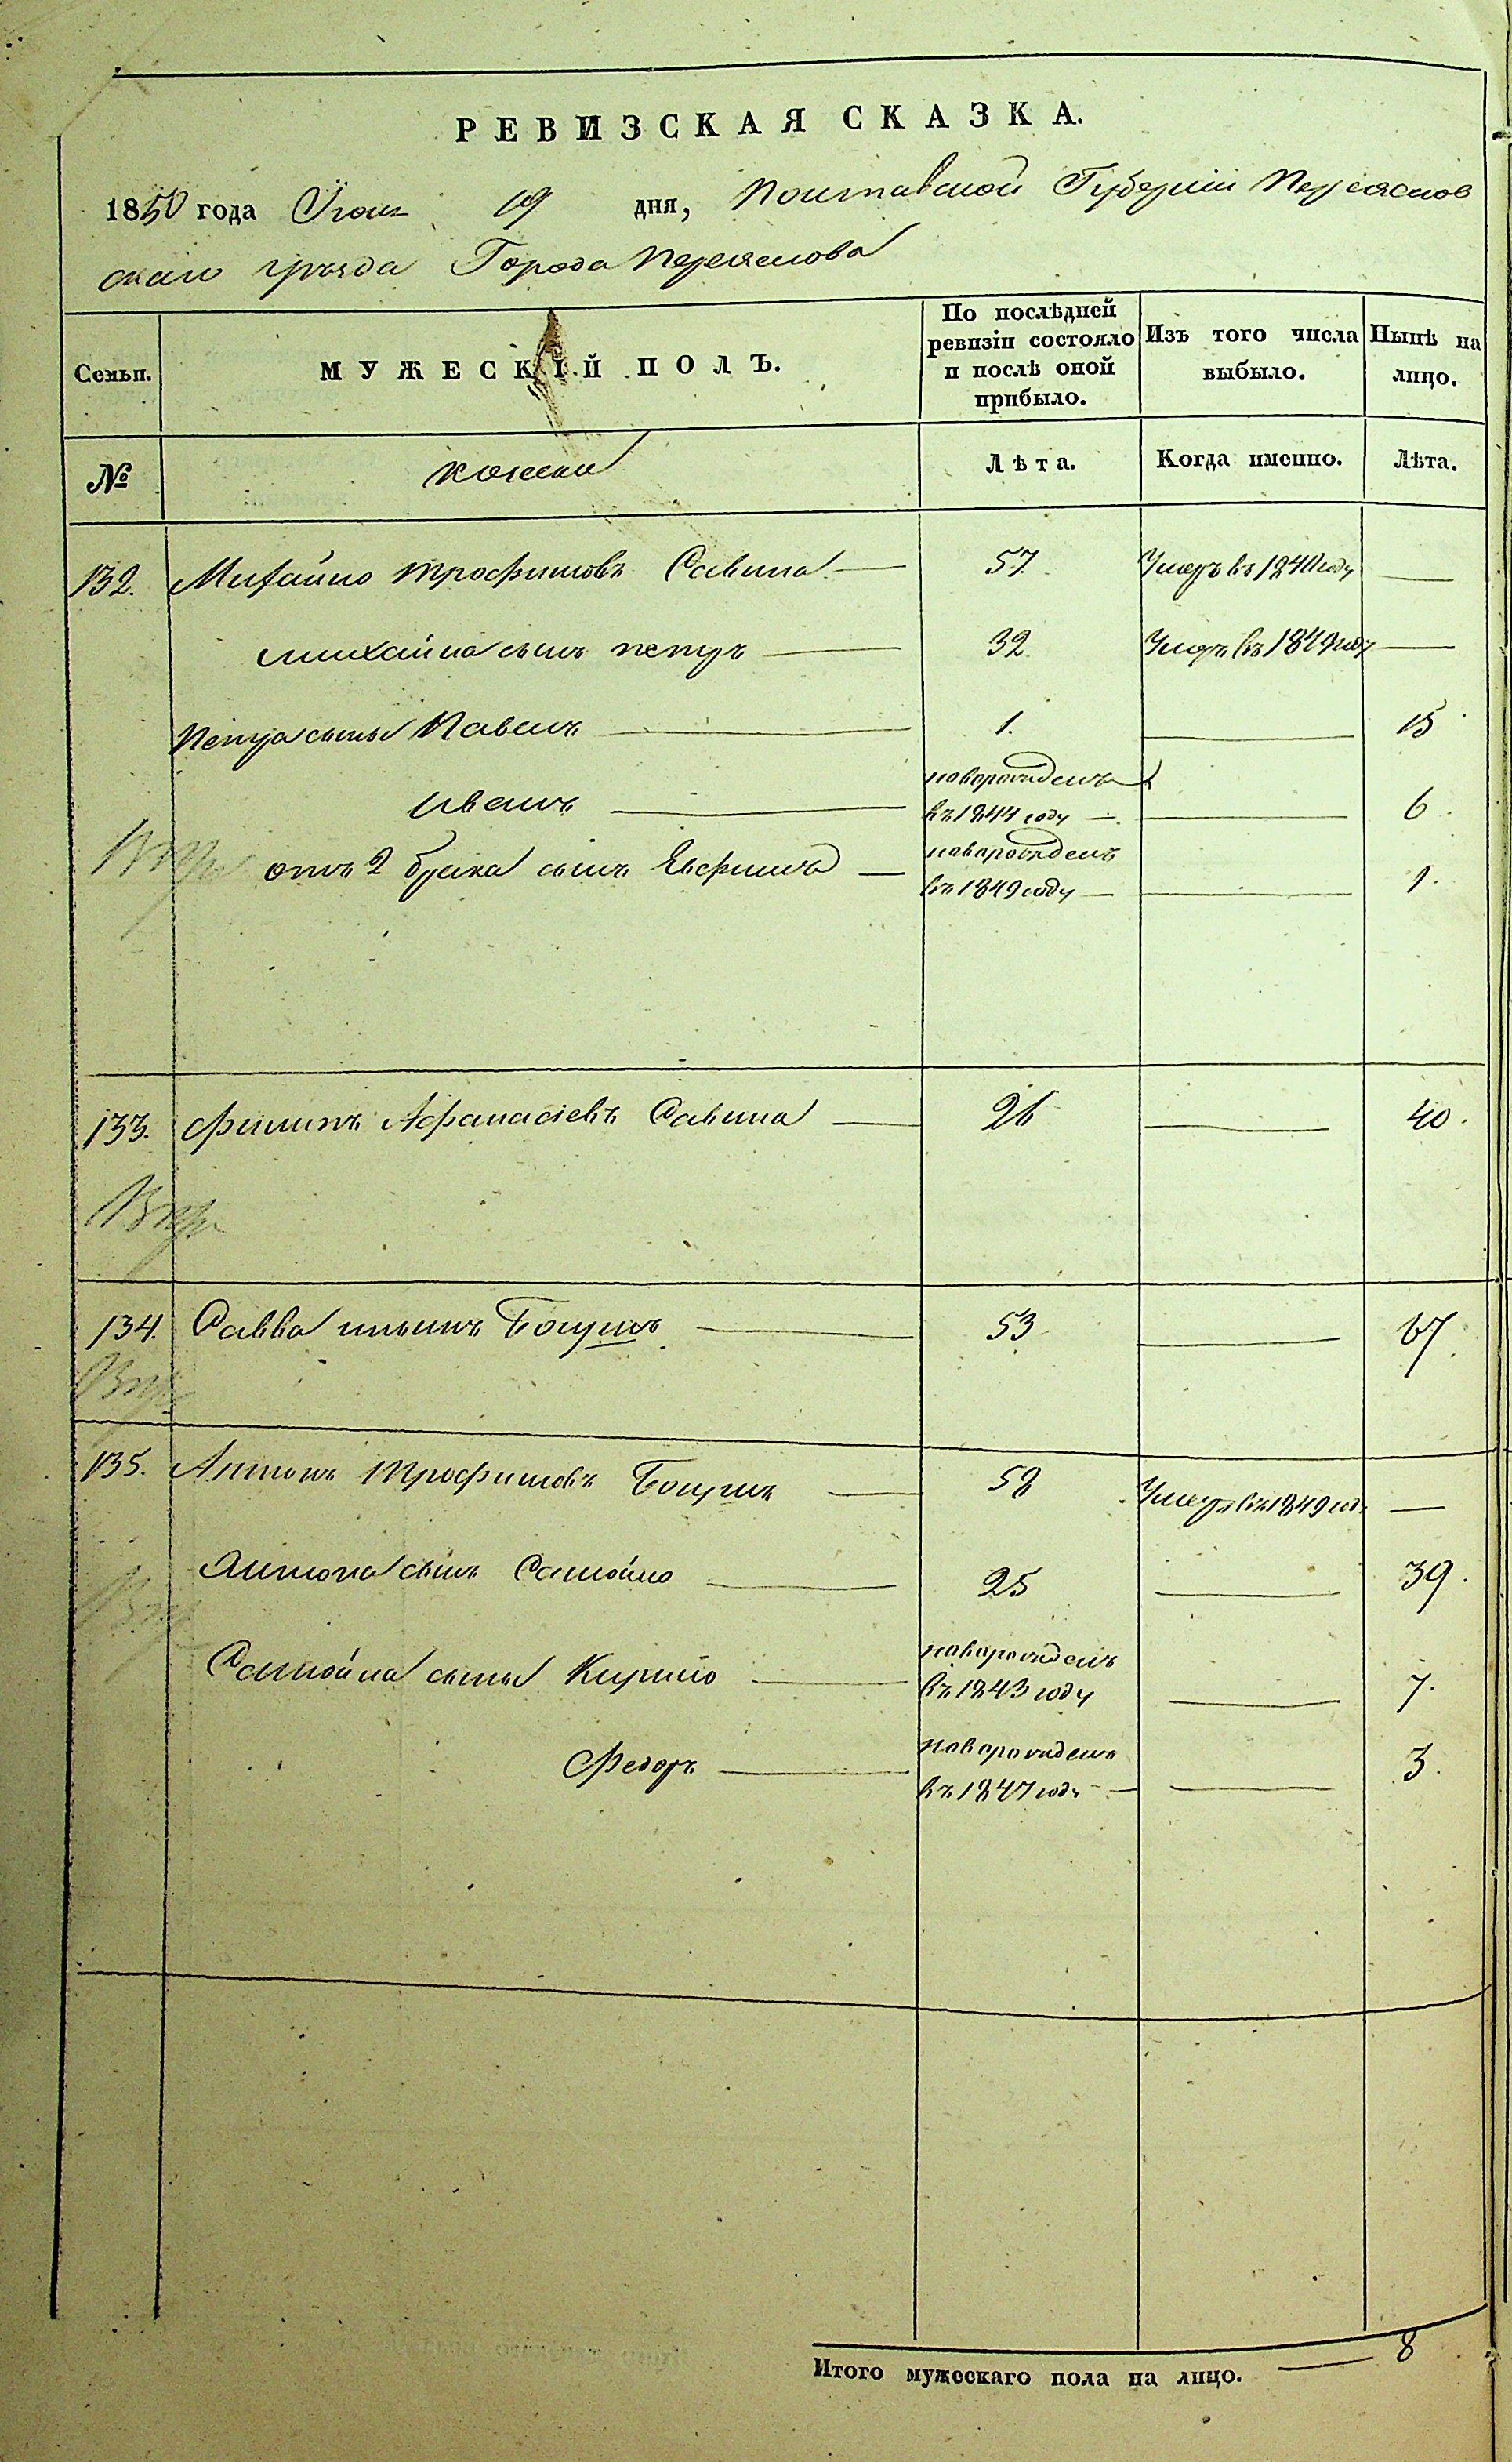 РЕВИЗСКАЯ СКАЗКА.
1850 года Июня 19 дня, Полтавской Губернии Переяслов
скаго уѣзда Города Переяслова
Семьи. МУЖЕСКІЙ ПОЛЪ. По послѣдней ревизіи состояло и послѣ оной прибыло. Изъ того числа выбыло. Нынѣ на лицо.
№ козаки Лѣта. Когда именно. Лѣта.
132. Михайло Трофимовъ Савипа 57. Умеръ въ 1840 году
Михайла сынъ Петръ 32. Умеръ въ 1849 году
Петра сыны Павелъ 1. 15
Иванъ новорожденъ въ 1844 году 6.
отъ 2 брака сынъ Евфимъ новорожденъ въ 1849 году 1.
133. Филипъ Афанасіевъ Савипа 26 40.
134. Савва Ильинъ Богушъ 53. 67.
135. Антонъ Трофимовъ Богушъ 58 Умеръ въ 1849 году
Антона сынъ Самойло 25 39.
Самойла сыны Кирило новорожденъ въ 1843 году 7.
Федоръ новорожденъ въ 1847 году 3.
Итого мужескаго пола на лицо. 8